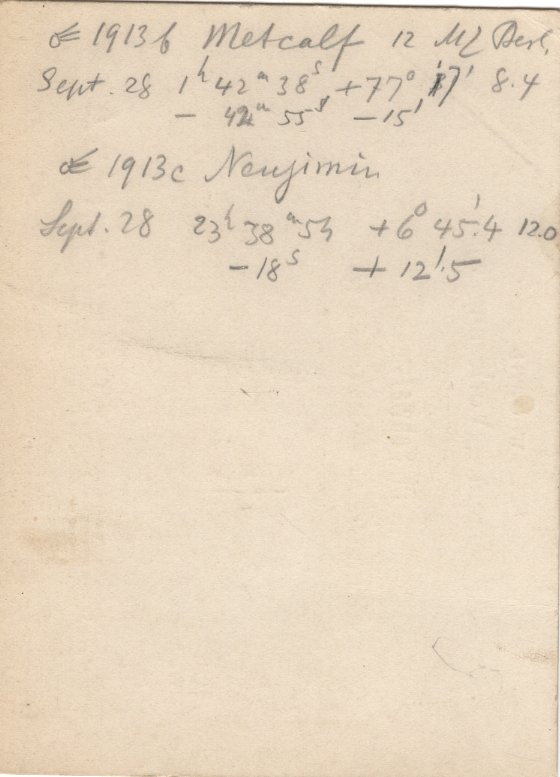 ☄ 1913 b Metcalf 12 MZ Berl.
Sept. 28 1ʰ 42ᵐ 38ˢ +77° 17' 8.4
– 42ᵐ 55ˢ –15'
☄ 1913 c Neujimin
Sept. 28 23ʰ 38ᵐ 54 +6° 45'.4 12.0
–18ˢ + 12'.5